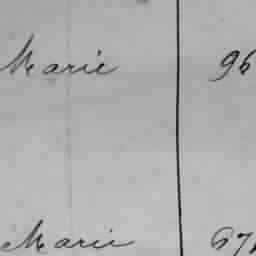 Marie 96
Marie 67